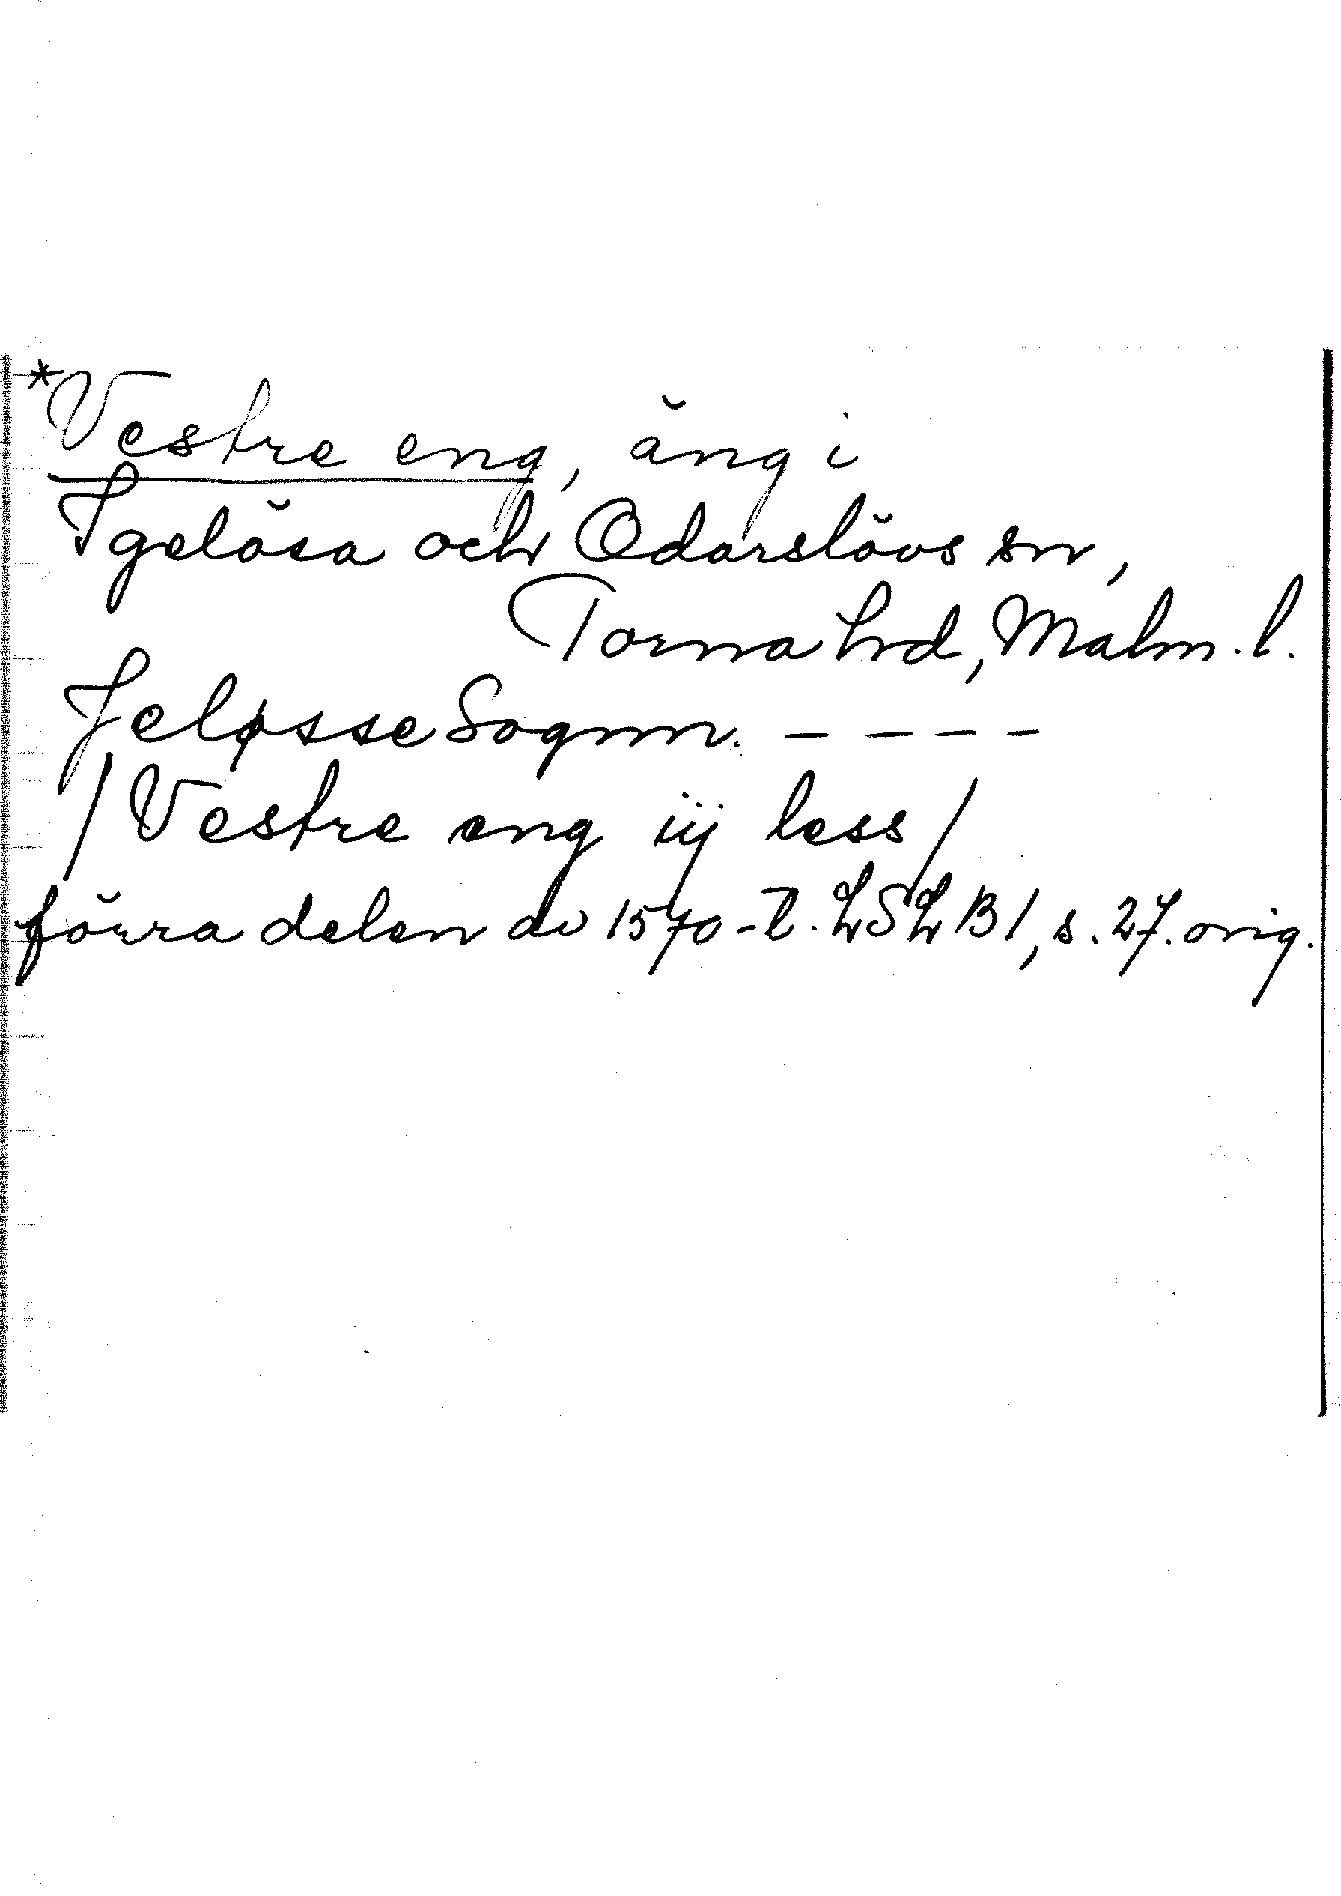 *Vestre eng, äng i
Igelösa och Odarslövs sn,
Torna hd, Malm. l.
Jeløsse Sognn. – – – –
/Vestre eng iij less/
förra delen av 1570-t. LSLB1, s. 27. orig.